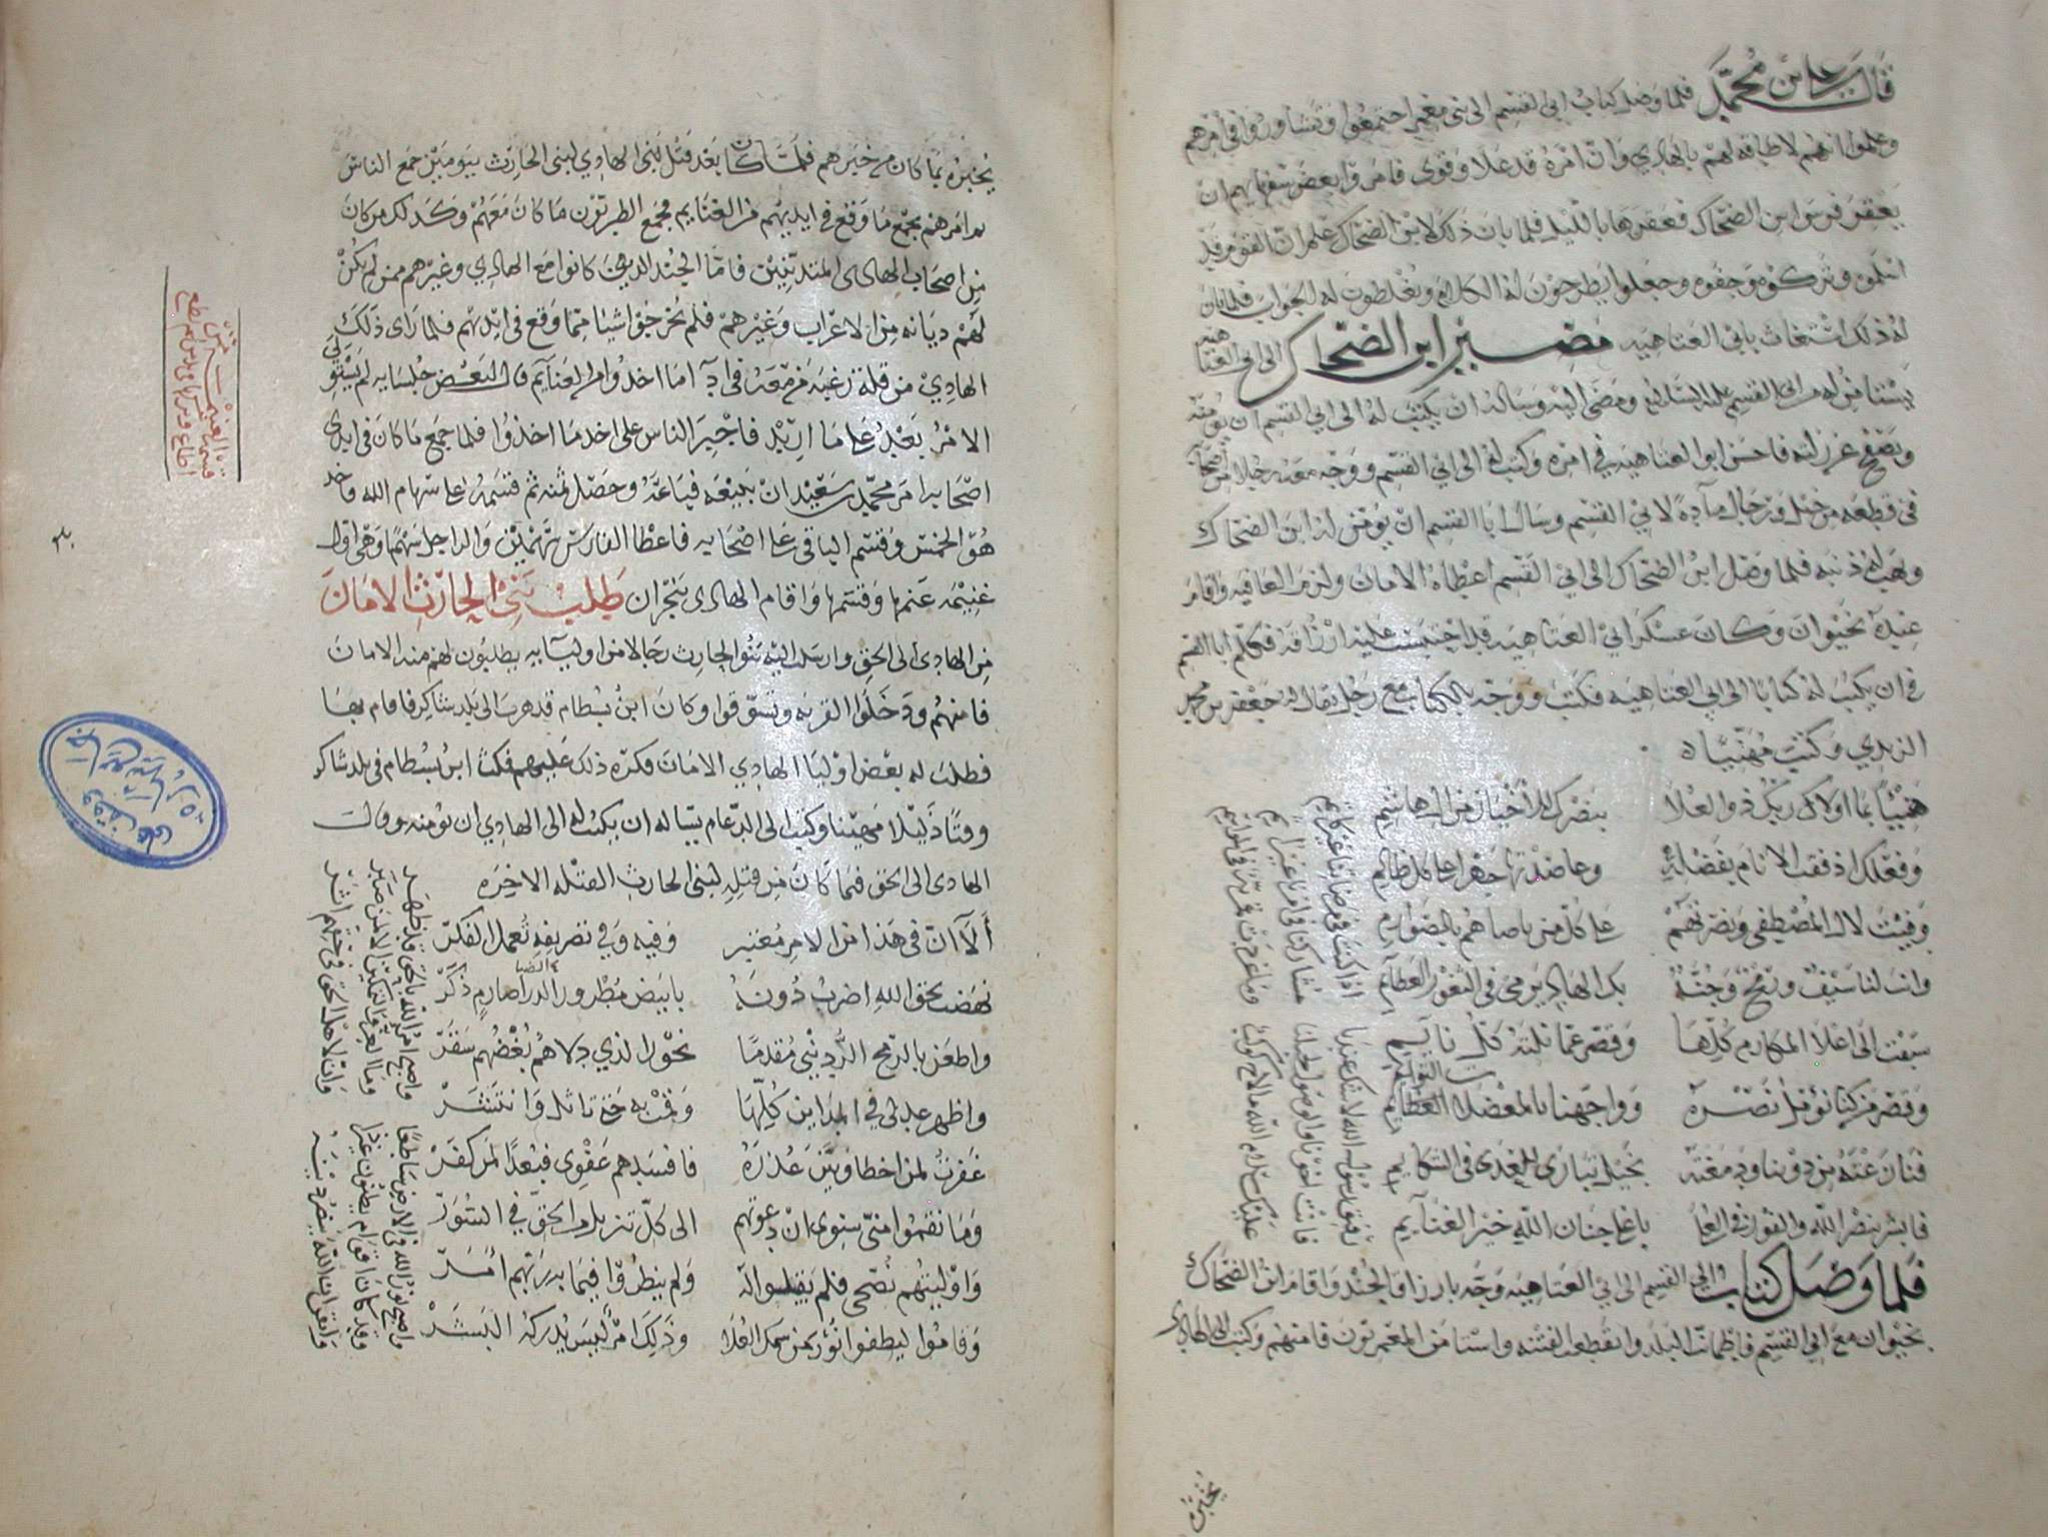 قال علي بن محمد فلما وصل كتاب ابي القسم الى بني معمر اجتمعوا وتشاوروا في امرهم
وعلموا انهم لا طاقة لهم بالهادي وان امره قد علا وقوى فامروا بعض سفهائهم ان
يعقر فرس ابن الضحاك فعقرها بالليل فلما بان ذلك لابن الضحاك علم ان القوم قد
اسلموه وتركوه وجفوه وجعلوا يطرحون له الكلام ويغلطون له الجواب فلما بان
له ذلك استغاث بابي العتاهيه مصير ابن الضحاك الى ابي العتاهيه
يستامن له من ابي القسم عليه السلام ومضى اليه وساله ان يكتب له الى ابي القسم ان يومنه
ويصفح عن زلته فاحسن ابو العتاهيه في امره وكتب له الى ابي القسم ووجه معه رجلا من اصحابه
في قطعه من خيل ورجال مادة لابي القسم وسال ابا القسم ان يومن له ابن الضحاك
ويهب له ذنبه فلما وصل ابن الضحاك الى ابي القسم اعطاه الامان ولزم العافيه واقام
عنده بخيوان وكان عسكر ابي العتاهيه قد احتبست عليه ارزاقه فكلم ابا القسم
في ان يكتب له كتابا الى ابي العتاهيه فكتب ووجه بالكتاب مع رجل يقال له جعفر بن محمد
الزيدي وكتب مهنيا له
هنيئا بما اولاك ربك ذو العلا بنصرك للاخيار من ال هاشم
وفعلك اذ فقت الانام بفضله وعاضدتها جهرا على كل ظالم
وفيت لال المصطفى ونصرتهم على كل من ناصاهم بالصوارم
وانت لنا سيف ورمح وجنة بك الهادي يرمي في الثغور العظايم
سبقت الى اعلا المكارم كلها وقصر عما نلته كل نايم
وقصر من كنا نؤمل نصره وواجهنا بالمعضلات العظايم
فابشر بنصر الله والفوز في العلا باعلا جنان الله خير الغنايم
اذا كنت في مرضاتنا غير كاتم
فلما وصل كتاب ابي القسم الى ابي العتاهيه وجه بارزاق الجند واقام ابن الضحاك
بخيوان مع ابي القسم فاطمانت البلد وانقطعت الفتنه واستامن المعمريون فامنهم وكتب الى الهادي
يخبره
يخبره بما كان من خبرهم فلما كان بعد قتل بني الهادي لبني الحارث بيومين جمع الناس
ثم امرهم بجمع ما وقع في ايديهم من الغنايم فجمع الطبريون ما كان معهم وكذلك من كان
من اصحاب الهادي المتدينين فاما الجند الذين كانوا مع الهادي وغيرهم ممن لم يكن
لهم ديانه من الاعراب وغيرهم فلم يخرجوا شيئا مما وقع في ايديهم فلما راى ذلك
الهادي من قلة رغبة من معه في ادآ ما اخذوا من الغنايم قال لبعض جلسايه لم يستو لي
الامر بعد على ما اريد فاجبر الناس على اخذ ما اخذوا فلما جمع ما كان في ايدي
اصحابه امر محمد بن سعيد ان يبيعه فباعه وحصل ثمنه ثم قسمه على سهام الله واخذ
هو الخمس وقسم الباقي على اصحابه فاعطا الفارس سهمين والراجل سهما وهي اول
غنيمه غنمها وقسمها واقام الهادي بنجران طلب بني الحارث الامان
من الهادي الى الحق وارسلت اليه بنو الحارث رجالا من اوليآيه يطلبون لهم منه الامان
فامنهم ودخلوا القريه وتسوقوا وكان ابن بسطام قد هرب الى بلد شاكر فاقام بها
فطلب له بعض اوليا الهادي الامان فكره ذلك عليهم فمكث ابن بسطام في بلد شاكر
وقتا ذليلا مهينا وكتب الى الدعام يساله ان يكتب له الى الهادي ان يومنه وقال
الهادي الى الحق فيما كان من قتله لبني الحارث القتله الاخره
ألا ان في هذا من الامر معتبر وفيه وفي تصريفه تعمل الفكر
نهضت بحق الله اضرب دونه بابيض مطرور الذرا صارم ذكر
واطعن بالرمح الرديني مقدما نحور الذي دلاهم بغضهم سقر
واظهر عدلي في المداين كلها وقمت به حتى تاثل وانتشر
غفرت لمن اخطا وبين عذره فافسدهم عفوي فبعدا لمن كفر
وما نقموا مني سوى ان دعوتهم الى كل تنزيل من الحق في السور
واوليتهم نصحي فلم يقبلوا له ولم ينظروا فيما به ربهم امر
وقاموا ليطفوا نور من سمك العلا وذلك امر ليس يدركه البشر
واصبح امر الله بالحق قد ظهر
واصبح نور الله في الارض ساطعا
وما العز والتمكين الا لمن صبر
قسمة الغنيمه